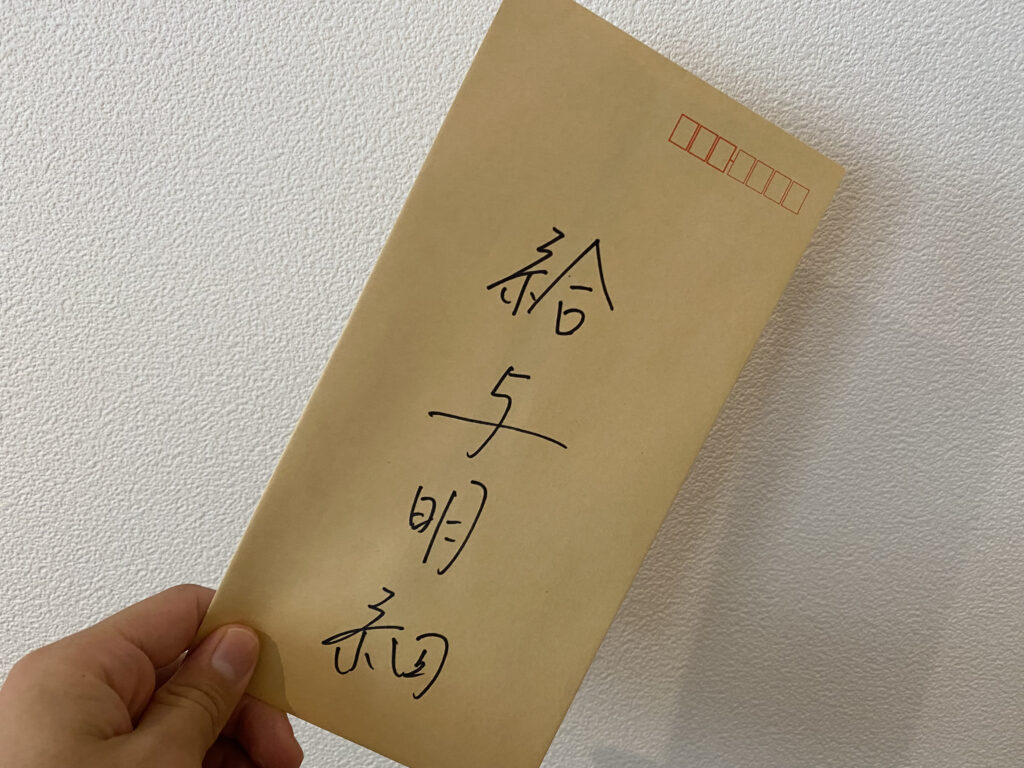 給与明細